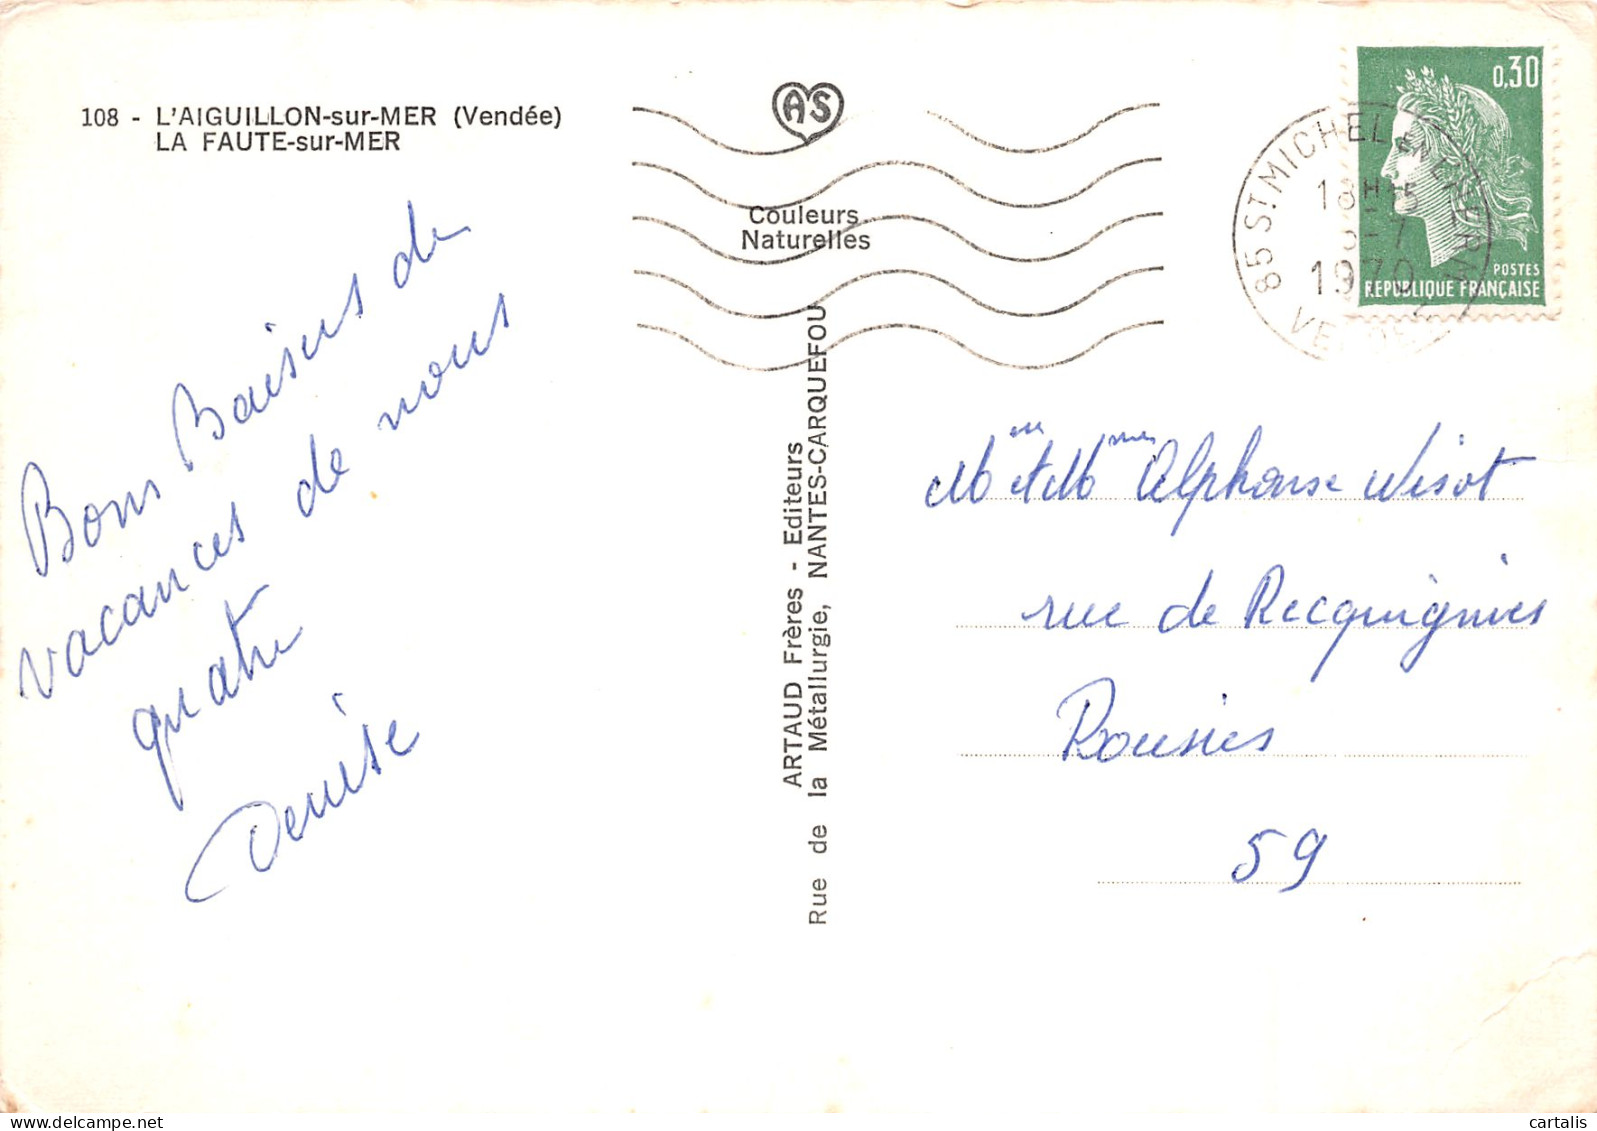 108 - L'AIGUILLON-sur-MER (Vendée)
LA FAUTE-sur-MER
Bons Baisers de
vacances de nous
quatre
Denise
AS
Couleurs
Naturelles
ARTAUD Frères - Editeurs
Rue de la Métallurgie, NANTES-CARQUEFOU
0,30
POSTES
REPUBLIQUE FRANÇAISE
85 ST MICHEL EN L'HERM
18H15
-7
1970
VENDEE
Mr et Mme Alphonse Wisot
rue de Recquignies
Rousies
59
cartalis